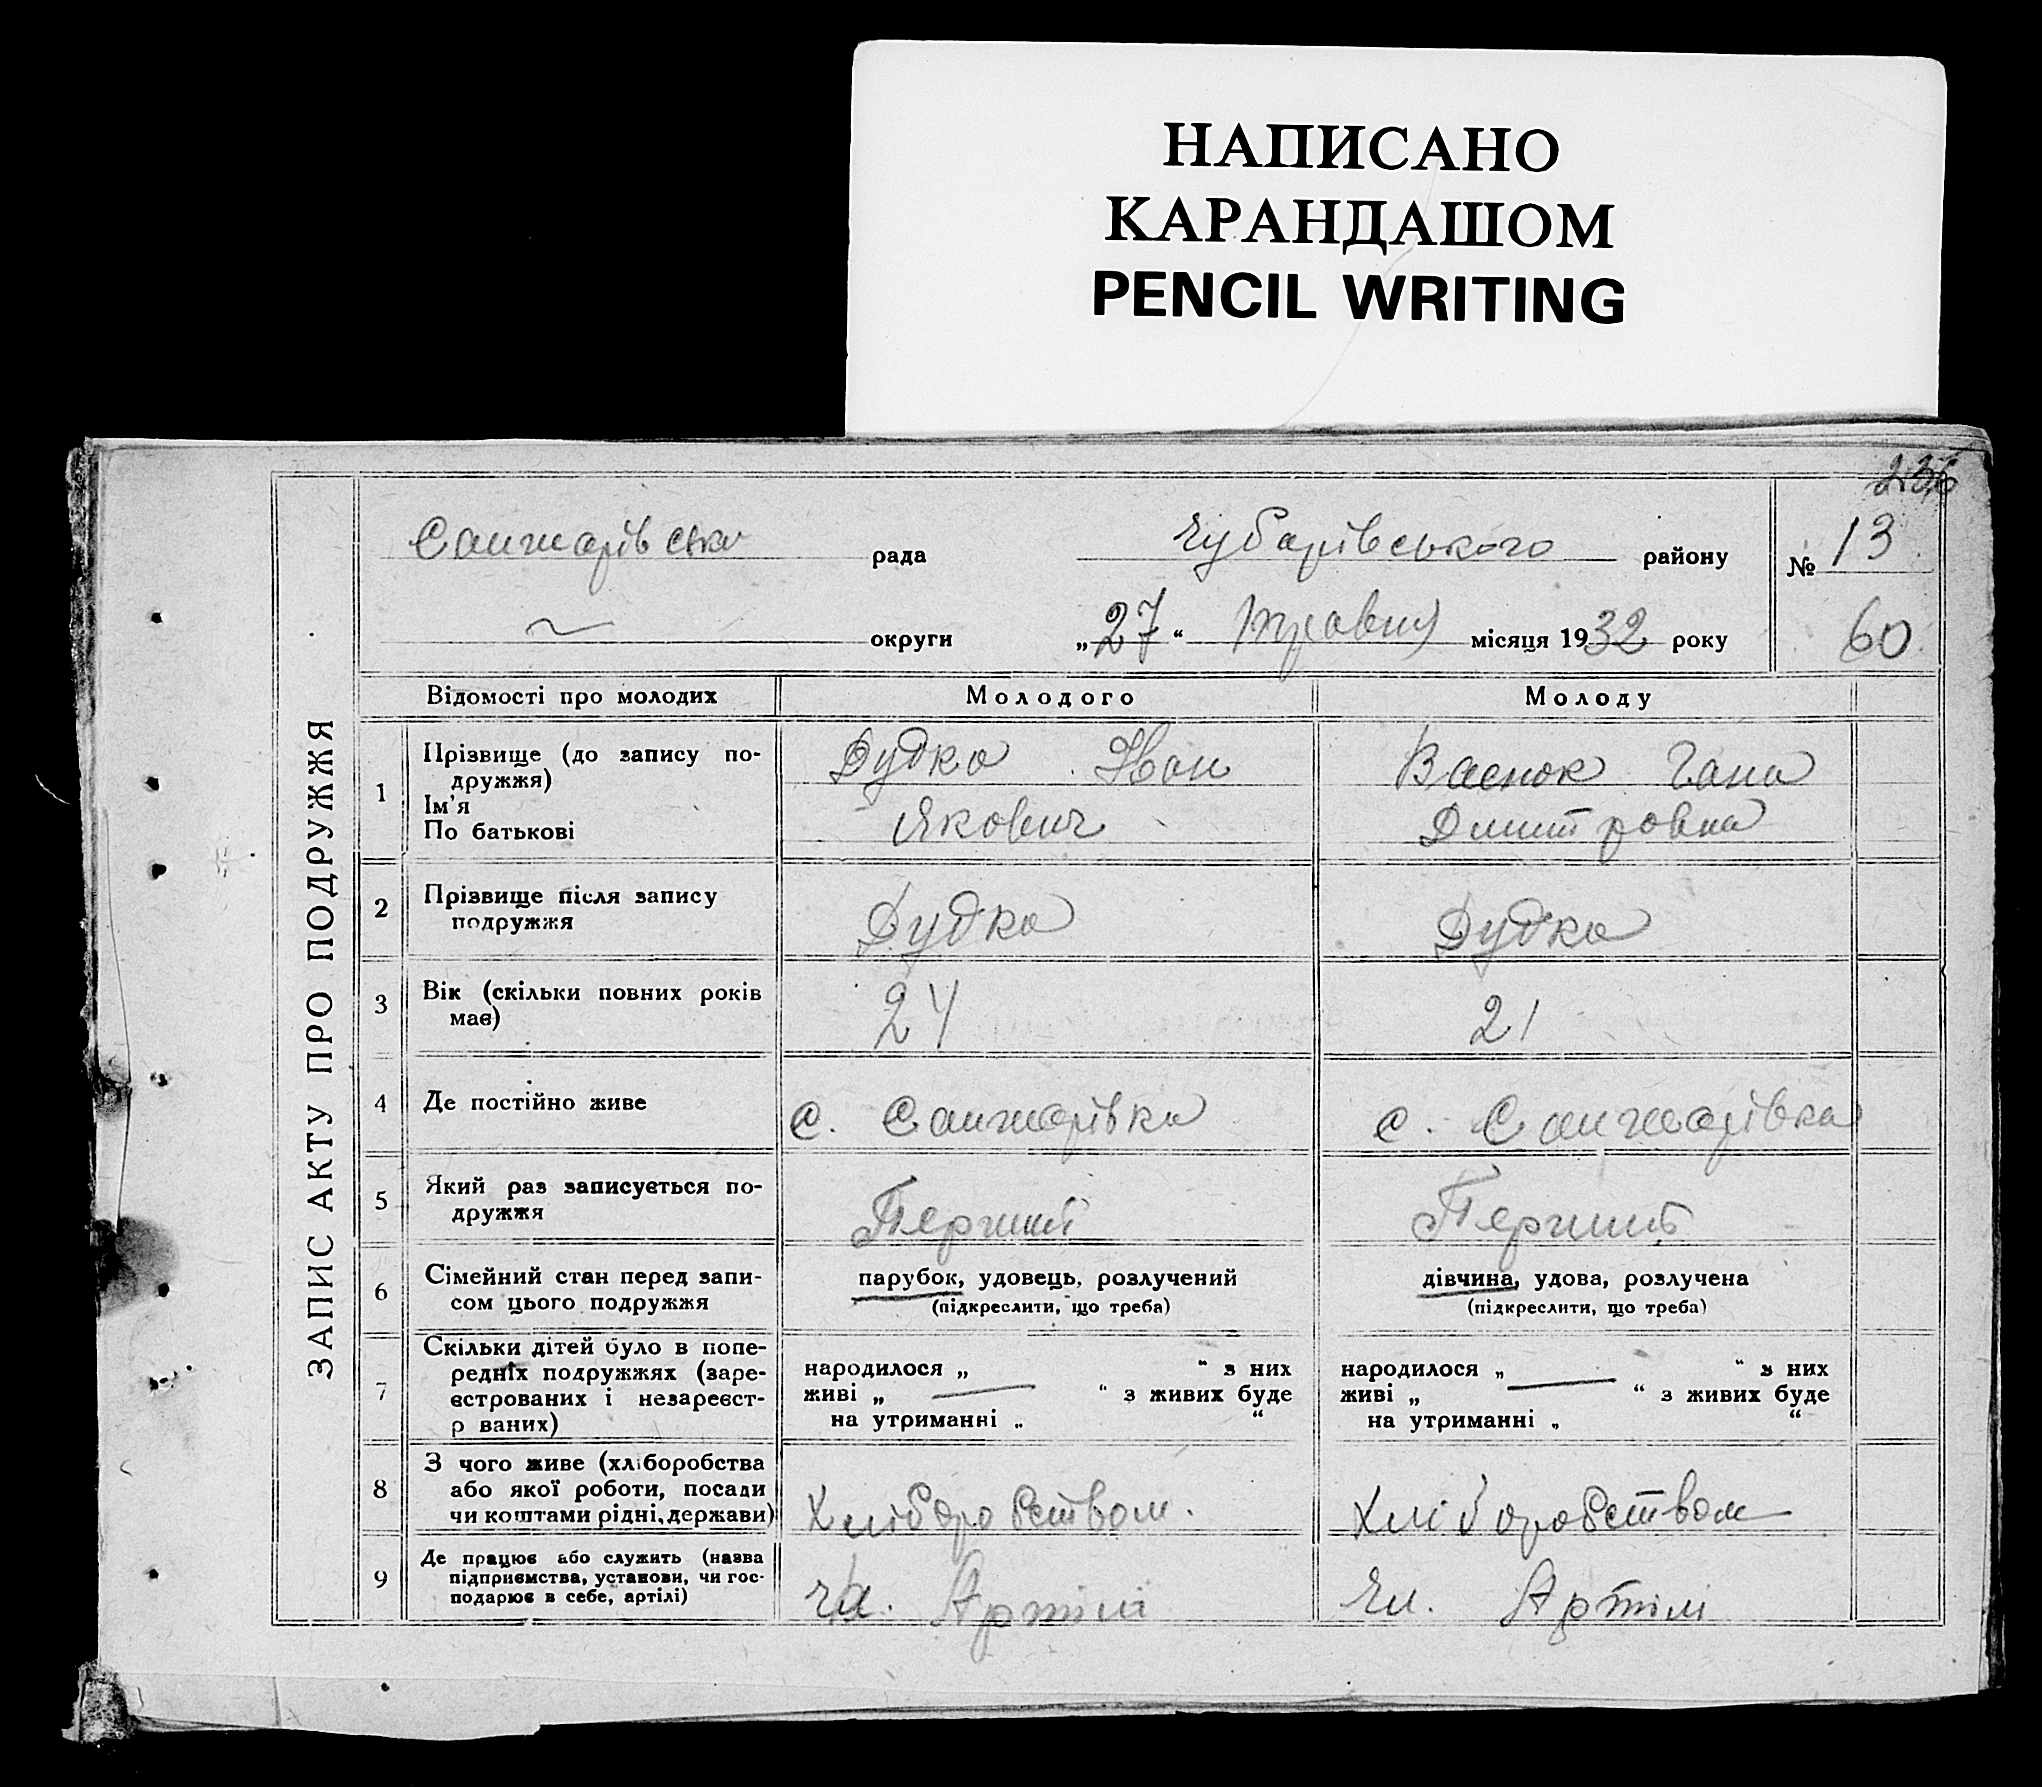 НАПИСАНО
КАРАНДАШОМ
PENCIL WRITING
236
ЗАПИС АКТУ ПРО ПОДРУЖЖЯ
Санжарівська рада Чубарівського району № 13
~ округи „27“ Травня місяця 1932 року 60
Відомості про молодих Молодого Молоду
1 Прізвище (до запису по-
дружжя)
Ім'я
По батькові
Дудка Іван
Якович
Васюк Гана
Димитровна
2 Прізвище після запису
подружжя
Дудка Дудка
3 Вік (скільки повних років
має)
24 21
4 Де постійно живе с. Санжарівка с. Санжарівка
5 Який раз записується по-
дружжя
Перший Перший
6 Сімейний стан перед запи-
сом цього подружжя
парубок, удовець, розлучений
(підкреслити, що треба)
дівчина, удова, розлучена
(підкреслити, що треба)
7 Скільки дітей було в попе-
редніх подружжях (заре-
єстрованих і незареєст-
р ваних)
народилося „ “ з них
живі „ — “ з живих буде
на утриманні „ “
народилося „ “ з них
живі „ — “ з живих буде
на утриманні „ “
8 З чого живе (хліборобства
або якої роботи, посади
чи коштами рідні, держави)
Хліборобством. Хліборобством
9 Де працює або служить (назва
підприємства, установи, чи гос-
подарює в себе, артілі)
Чл. Артілі Чл. Артілі